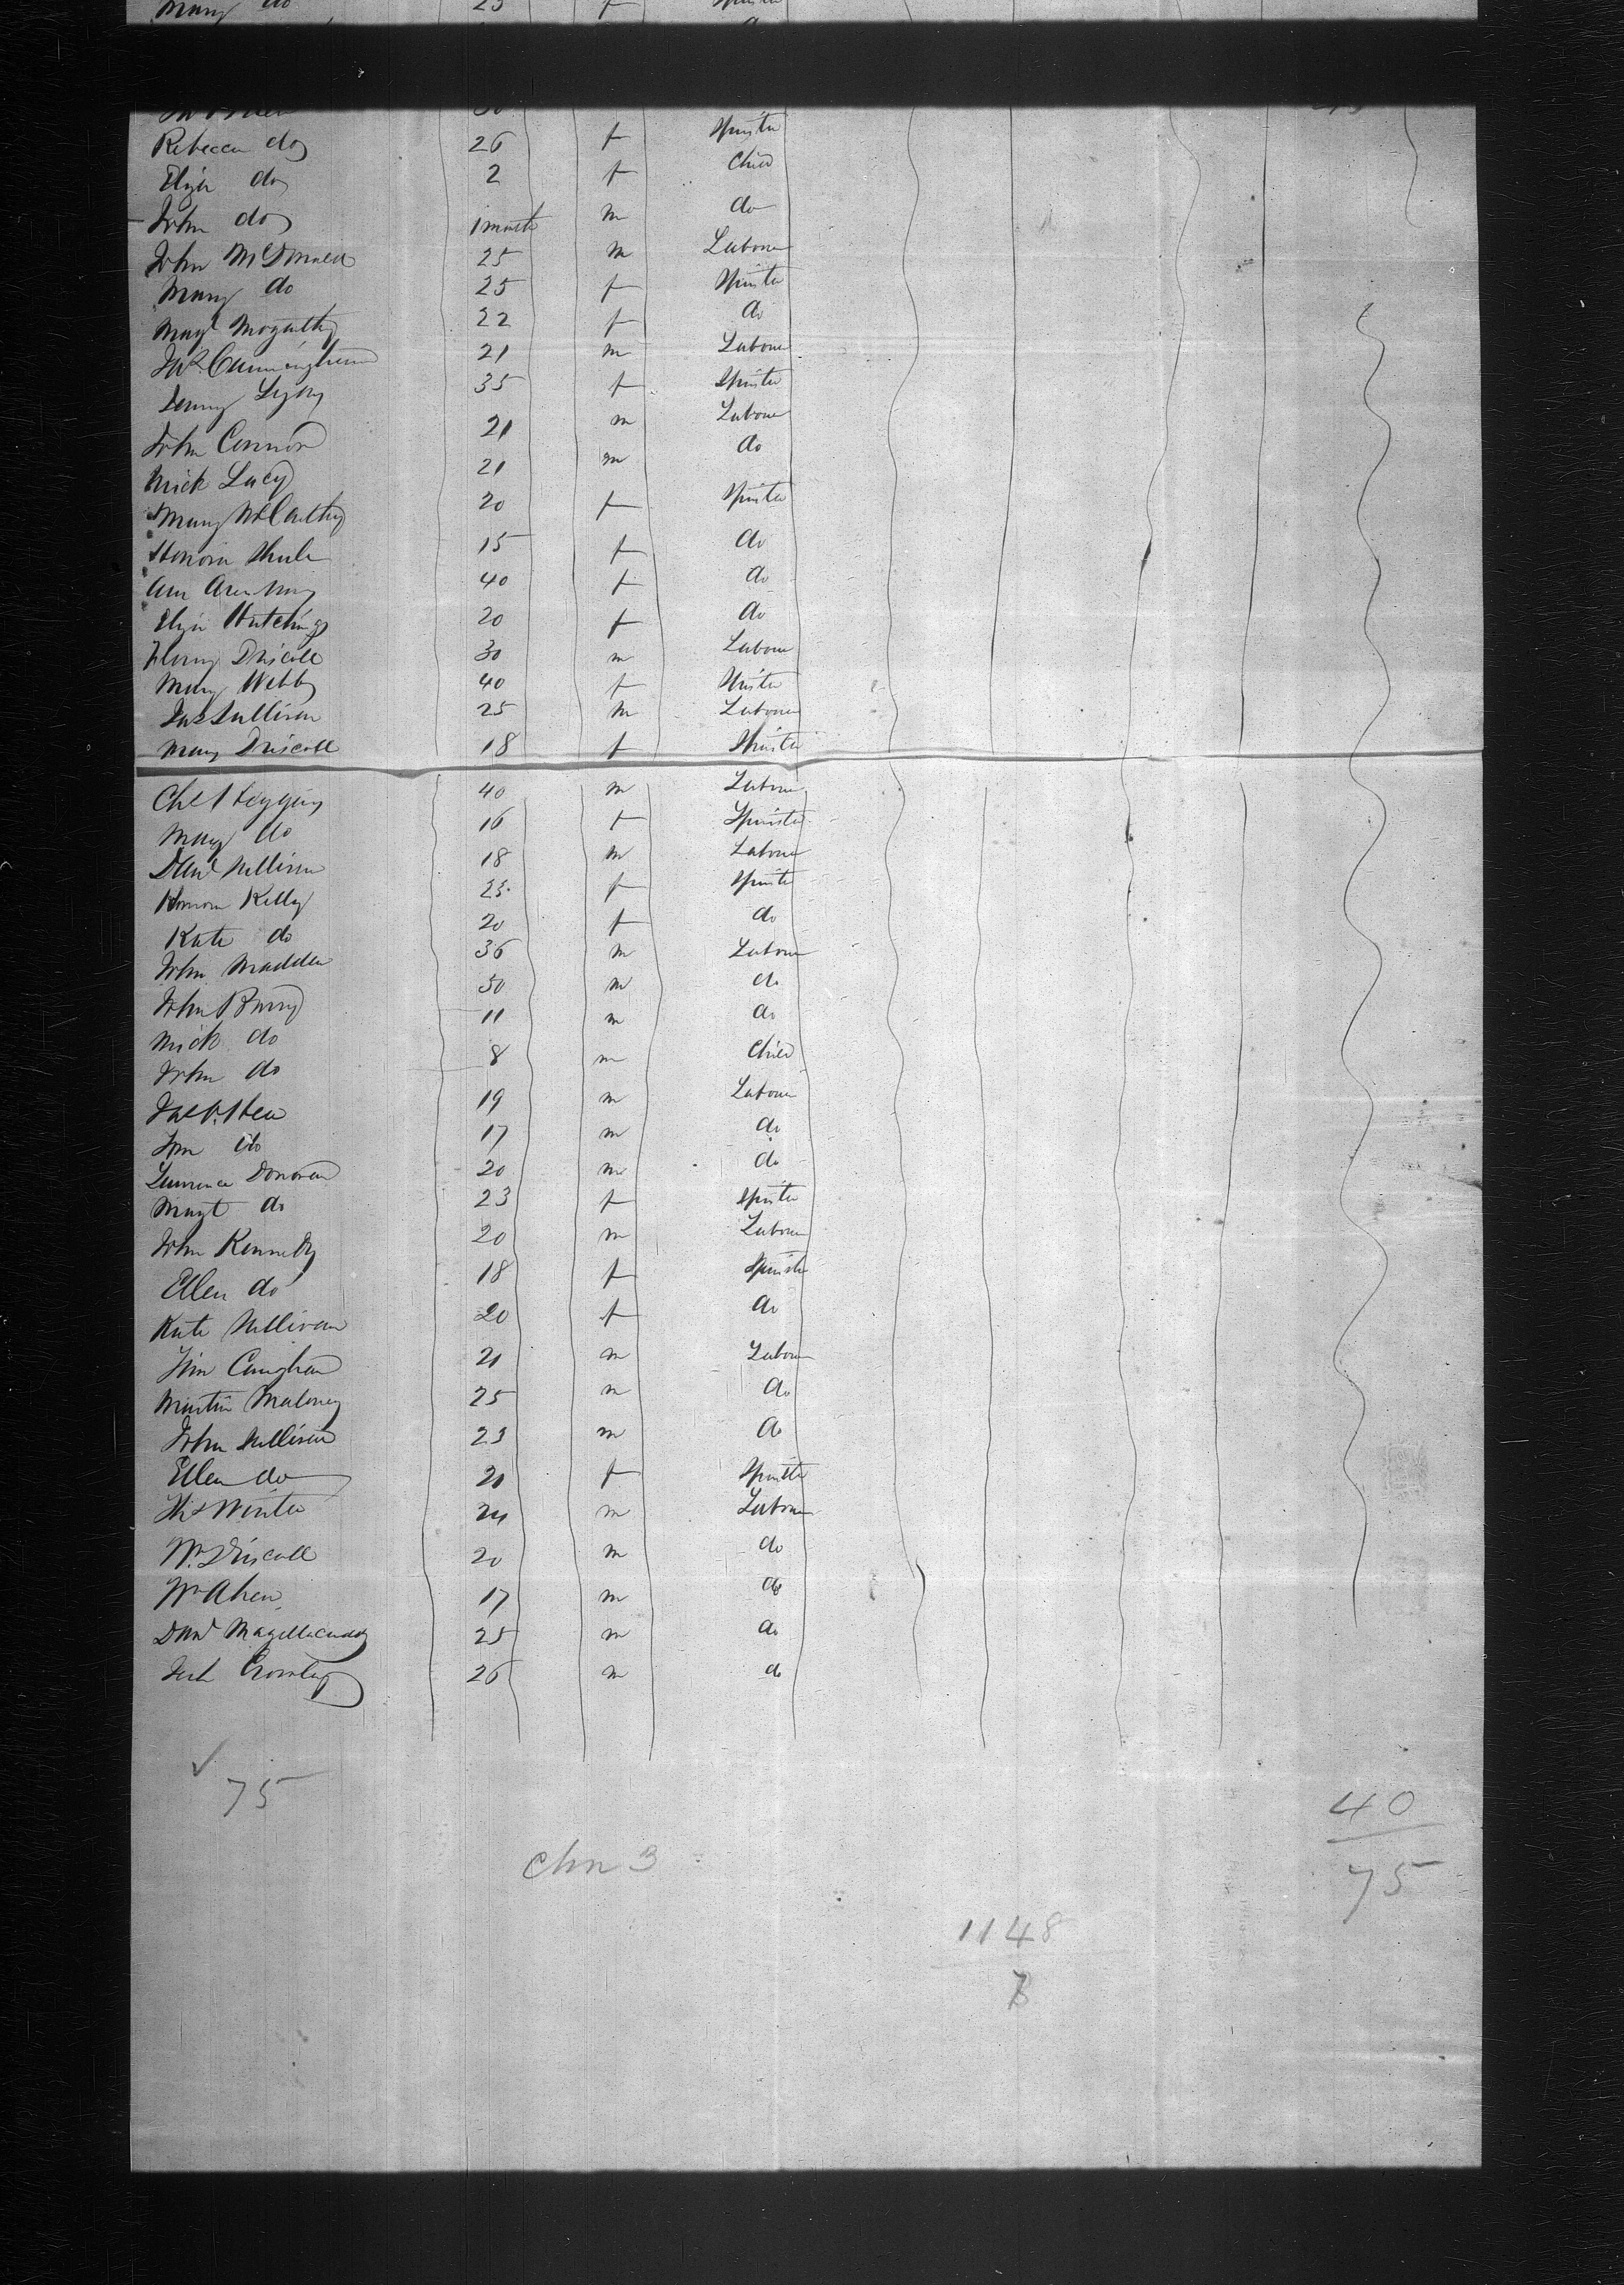 Mary do 25 f Spinster
Rebecca do 26 f Spinster
Eliza do 2 f Child
John do 1 month m do
John McDonald 25 m Labourer
Mary do 25 f Spinster
Magt 22 f do
Jas Cunningham 21 m Labourer
35 f Spinster
John Connor 21 m Labourer
Mick Lacy 21 m do
Mary McCarthy 20 f Spinster
Honora 15 f do
Ann Armstrong 40 f do
Eliza Hutchings 20 f do
Driscoll 30 m Labourer
Mary Webb 40 f Spinster
Jas Sullivan 25 m Labourer
Mary Driscoll 18 f Spinster
Chs Heggins 40 m Labourer
Mary do 16 f Spinster
Danl Sullivan 18 m Labourer
Honora Kelly 25 f Spinster
Kate do 20 f do
John Madden 36 m Labourer
John Barry 50 m do
Mick do 11 m do
John do 8 m Child
Jas 19 m Labourer
do 17 m do
Laurence Donovan 20 m do
Magt do 23 f Spinster
John Kennedy 20 m Labourer
Ellen do 18 f Spinster
Kate Sullivan 20 f do
Tim 21 m Labourer
Martin Maloney 25 m do
John Sullivan 23 m do
Ellen do 20 f Spinster
Winter 24 m Labourer
Wm Driscoll 20 m do
Wm Ahern 17 m do
Danl Magillacuddy 25 m do
Crowley 26 m do
75 40
chn 3 75
1148